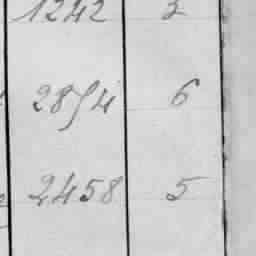 1242 2
2854 6
2458 5